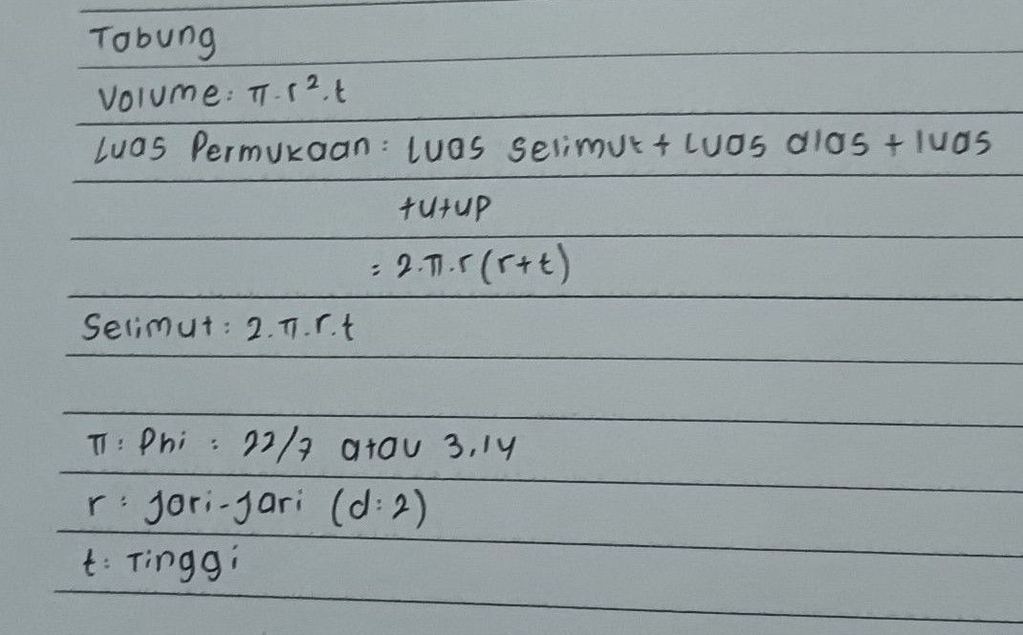 Tabung
Volume: π.r².t
Luas Permukaan: Luas Selimut + Luas alas + luas
tutup
= 2.π.r(r+t)
Selimut: 2.π.r.t
π: Phi : 22/7 atau 3,14
r : jari-jari (d:2)
t: Tinggi